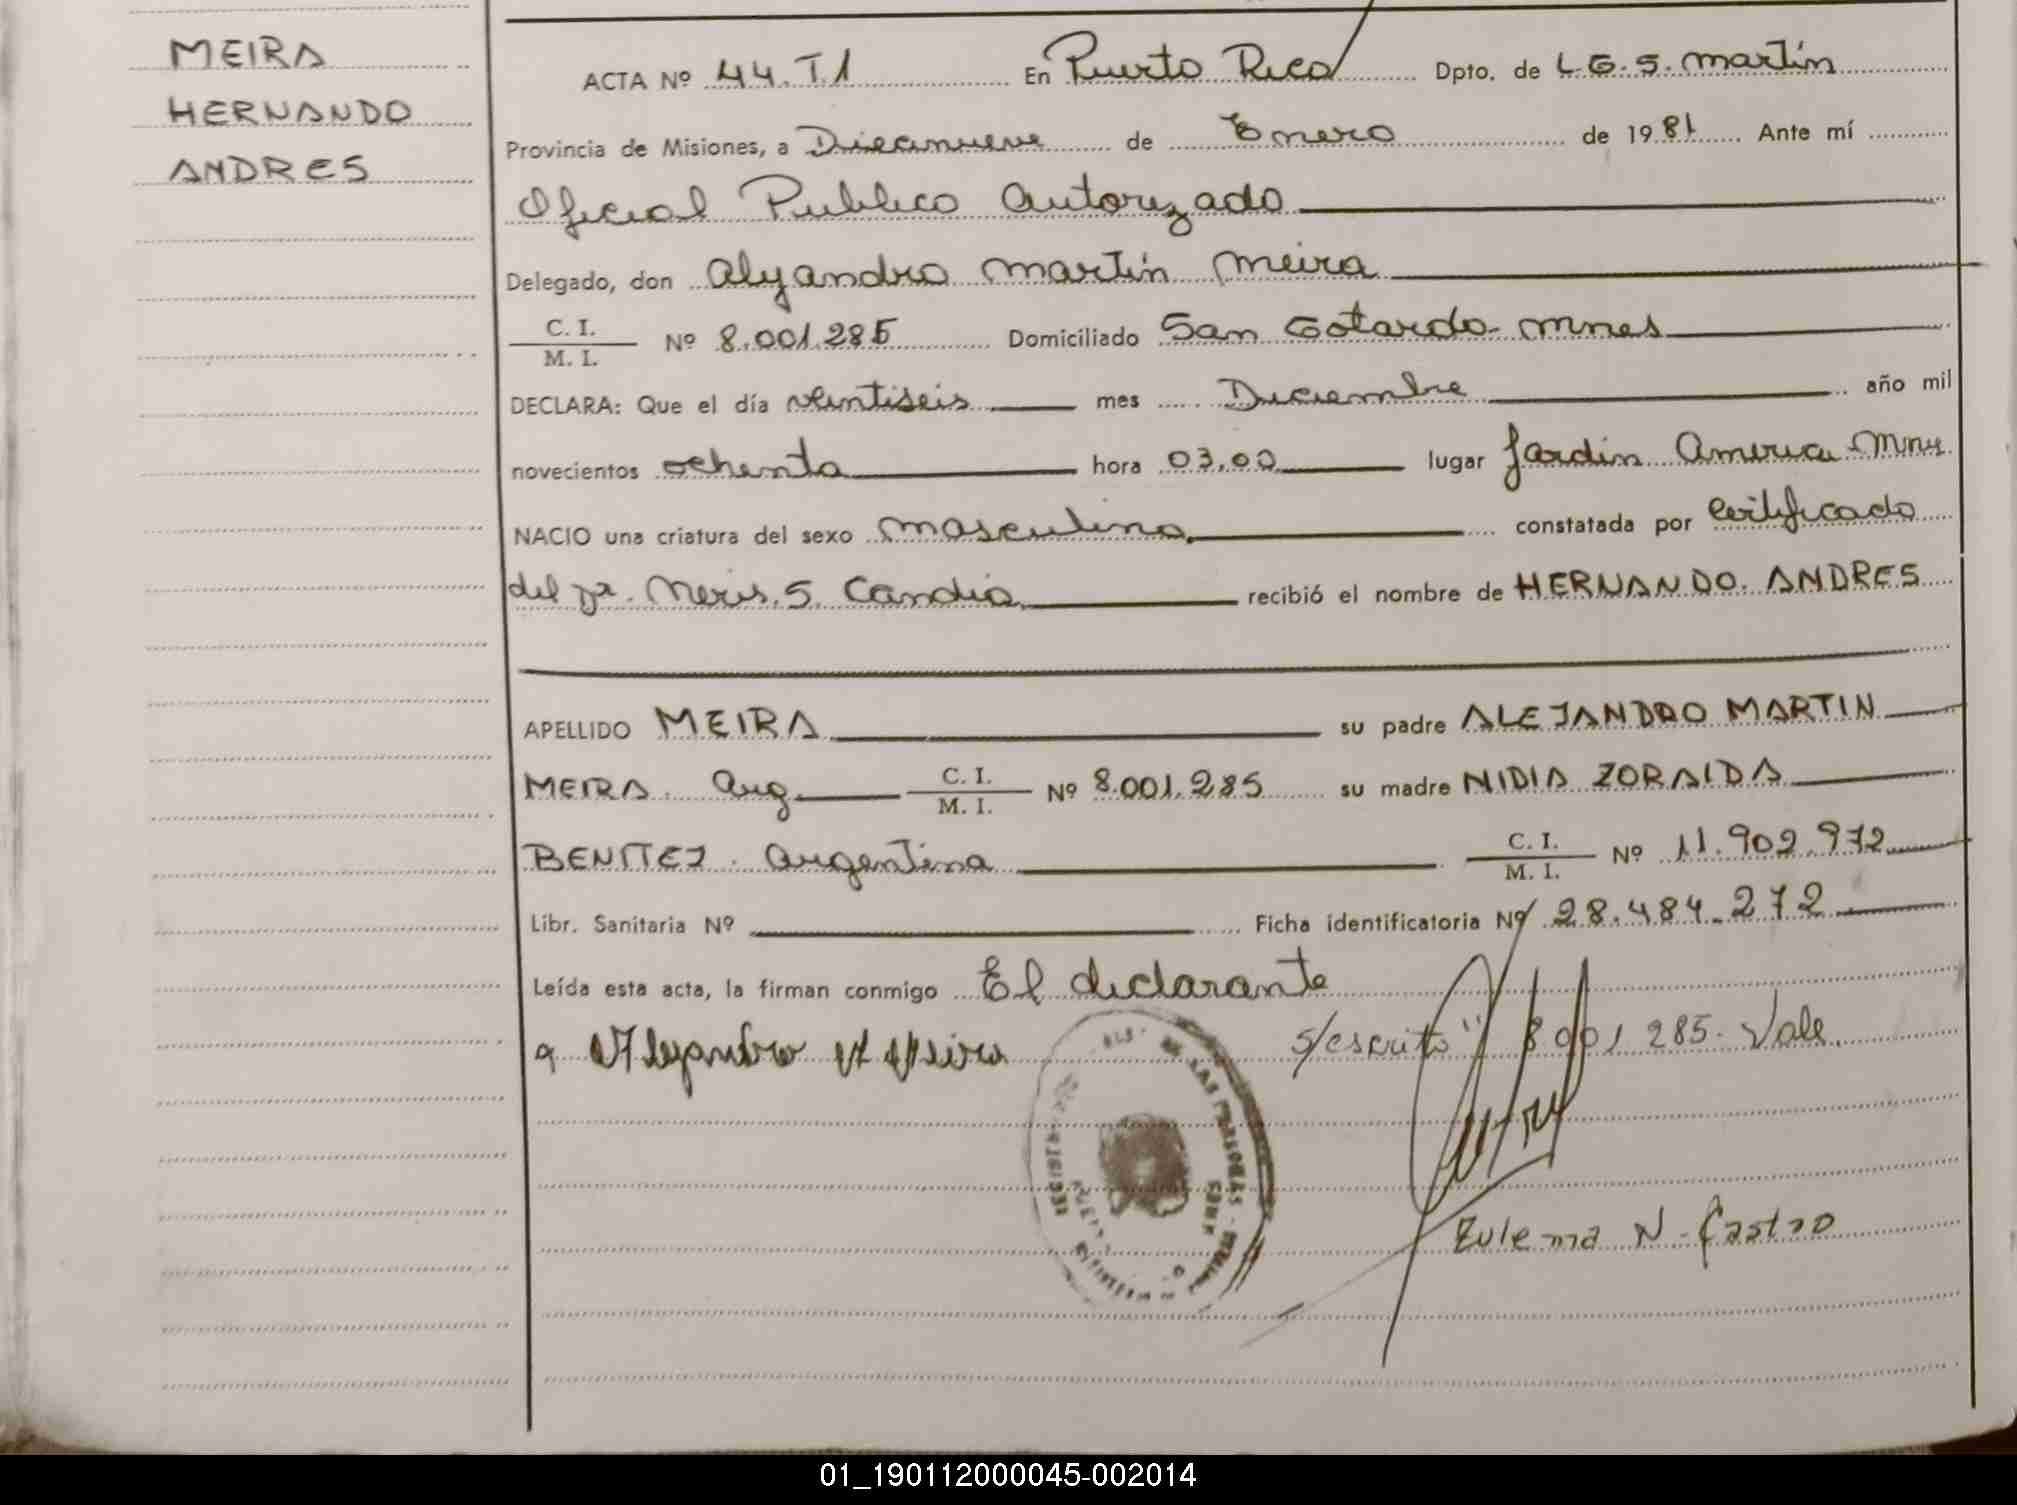 MEIRA
HERNANDO
ANDRES
ACTA Nº 44.T.1 En Puerto Rico Dpto. de L.G.S. Martín
Provincia de Misiones, a Diecinueve de Enero de 1981 Ante mí
Oficial Publico Autorizado
Delegado, don Alejandro Martín Meira
C. I.
M. I. Nº 8.001.285 Domiciliado San Gotardo - Mnes
DECLARA: Que el día veintiseis mes Diciembre año mil
novecientos ochenta hora 03,00 lugar Jardin America Mnes
NACIO una criatura del sexo masculino constatada por certificado
del Dr. S. Candia recibió el nombre de HERNANDO. ANDRES
APELLIDO MEIRA su padre ALEJANDRO MARTIN
MEIRA. Arg. C. I. M. I. Nº 8.001.285 su madre NIDIA ZORAIDA
BENITEZ. Argentina C. I. M. I. Nº 11.902.972
Libr. Sanitaria Nº Ficha identificatoria Nº 28.484.272
Leída esta acta, la firman conmigo El declarante
Alejandro M Meira S/escrito " 8001285. Vale.
DE LAS PERSONAS
Zulema N. Castro
01_190112000045-002014